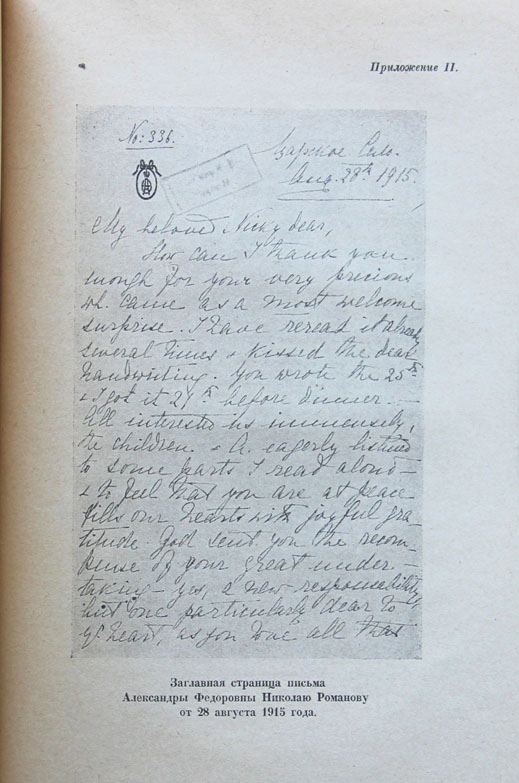 Приложение II.
No: 336.
Царское Село.
Aug. 28th 1915.
My beloved Nicky dear,
How can I thank you
enough for your very precious
wh. came as a most welcome
surprise. I have reread it already
several times & kissed the dear
handwriting. You wrote the 25th
& I got it 27th before dinner. —
All interested us immensely,
the children & A. eagerly listened
to some parts I read aloud —
& to feel that you are at peace
fills our hearts with joyful gra-
titude. God sent you the recom-
pense of your great under-
taking — yes, a new responsability,
but one particularly dear to
yr. heart, as you love all that
Заглавная страница письма
Александры Федоровны Николаю Романову
от 28 августа 1915 года.